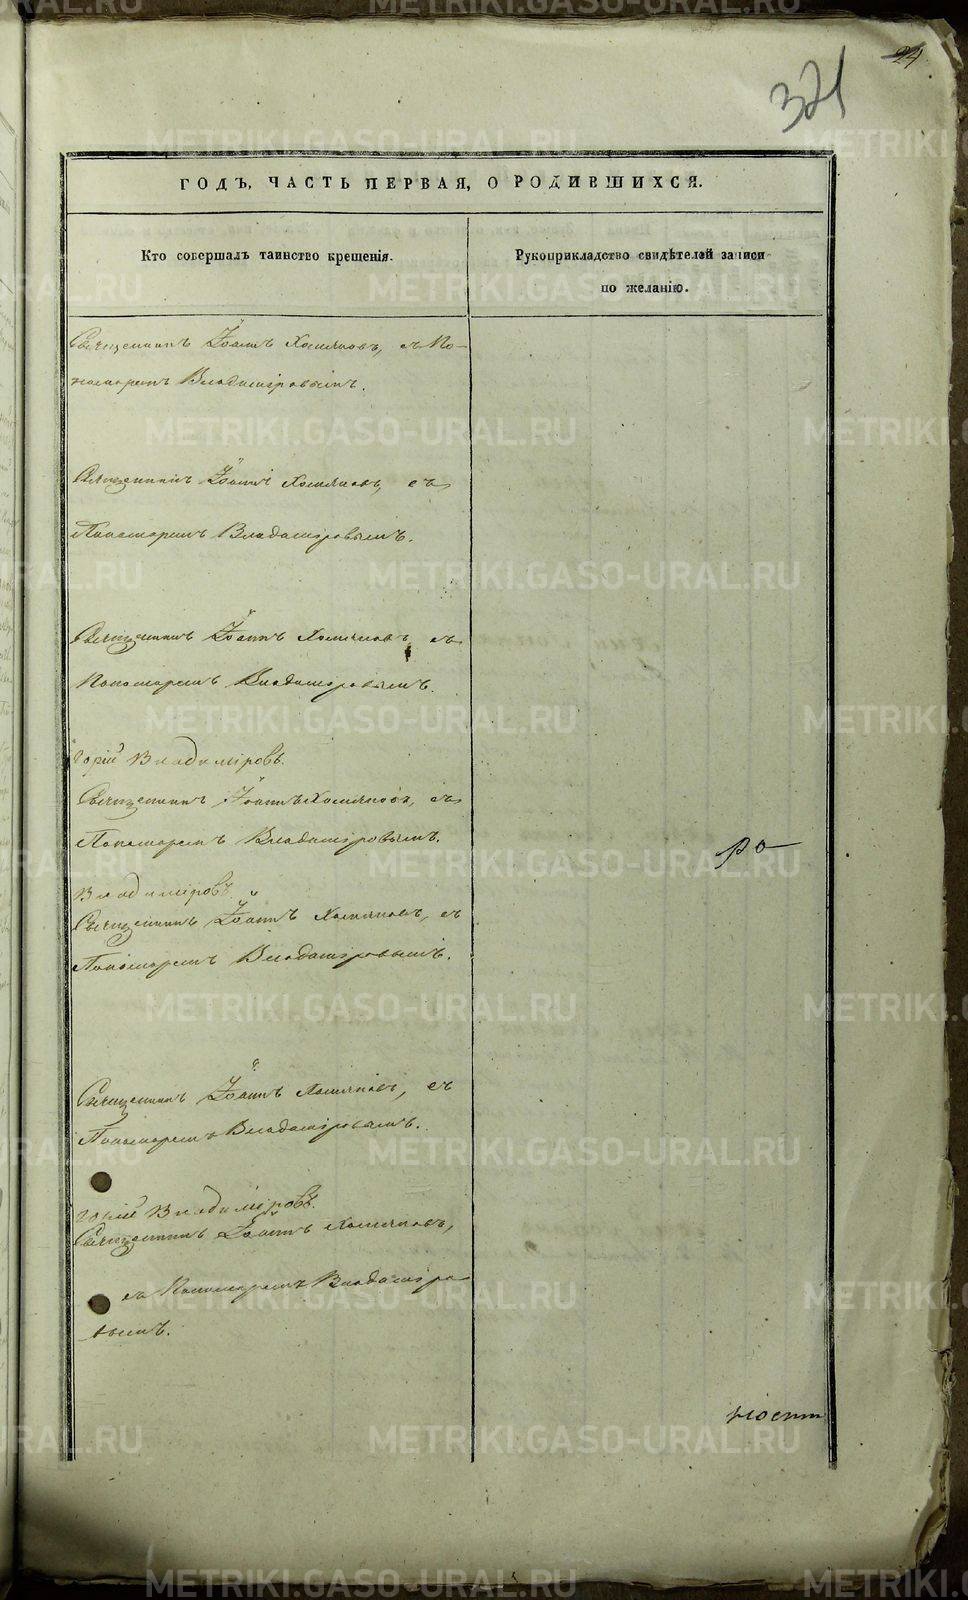 24
321
ГОДЪ, ЧАСТЬ ПЕРВАЯ, О РОДИВШИХСЯ.
Кто совершалъ таинство крещенія.
Рукоприкладство свидѣтелей записи
по желанію.
Священникъ Іоаннъ Хомяковъ, съ По-
номаремъ Владиміровымъ.
Священникъ Іоаннъ Хомяковъ, съ
Пономаремъ Владиміровымъ.
Священникъ Іоаннъ Хомяковъ, съ
Пономаремъ Владиміровымъ.
горій Владиміровъ.
Священникъ Іоаннъ Хомяковъ, съ
Пономаремъ Владиміровымъ.
ро
Владиміровъ.
Священникъ Іоаннъ Хомяковъ, съ
Пономаремъ Владиміровымъ.
Священникъ Іоаннъ Хомяковъ, съ
Пономаремъ Владиміровымъ.
горій Владиміровъ.
Священникъ Іоаннъ Хомяковъ,
съ Пономаремъ Владиміро-
вымъ.
ност
METRIKI.GASO-URAL.RU